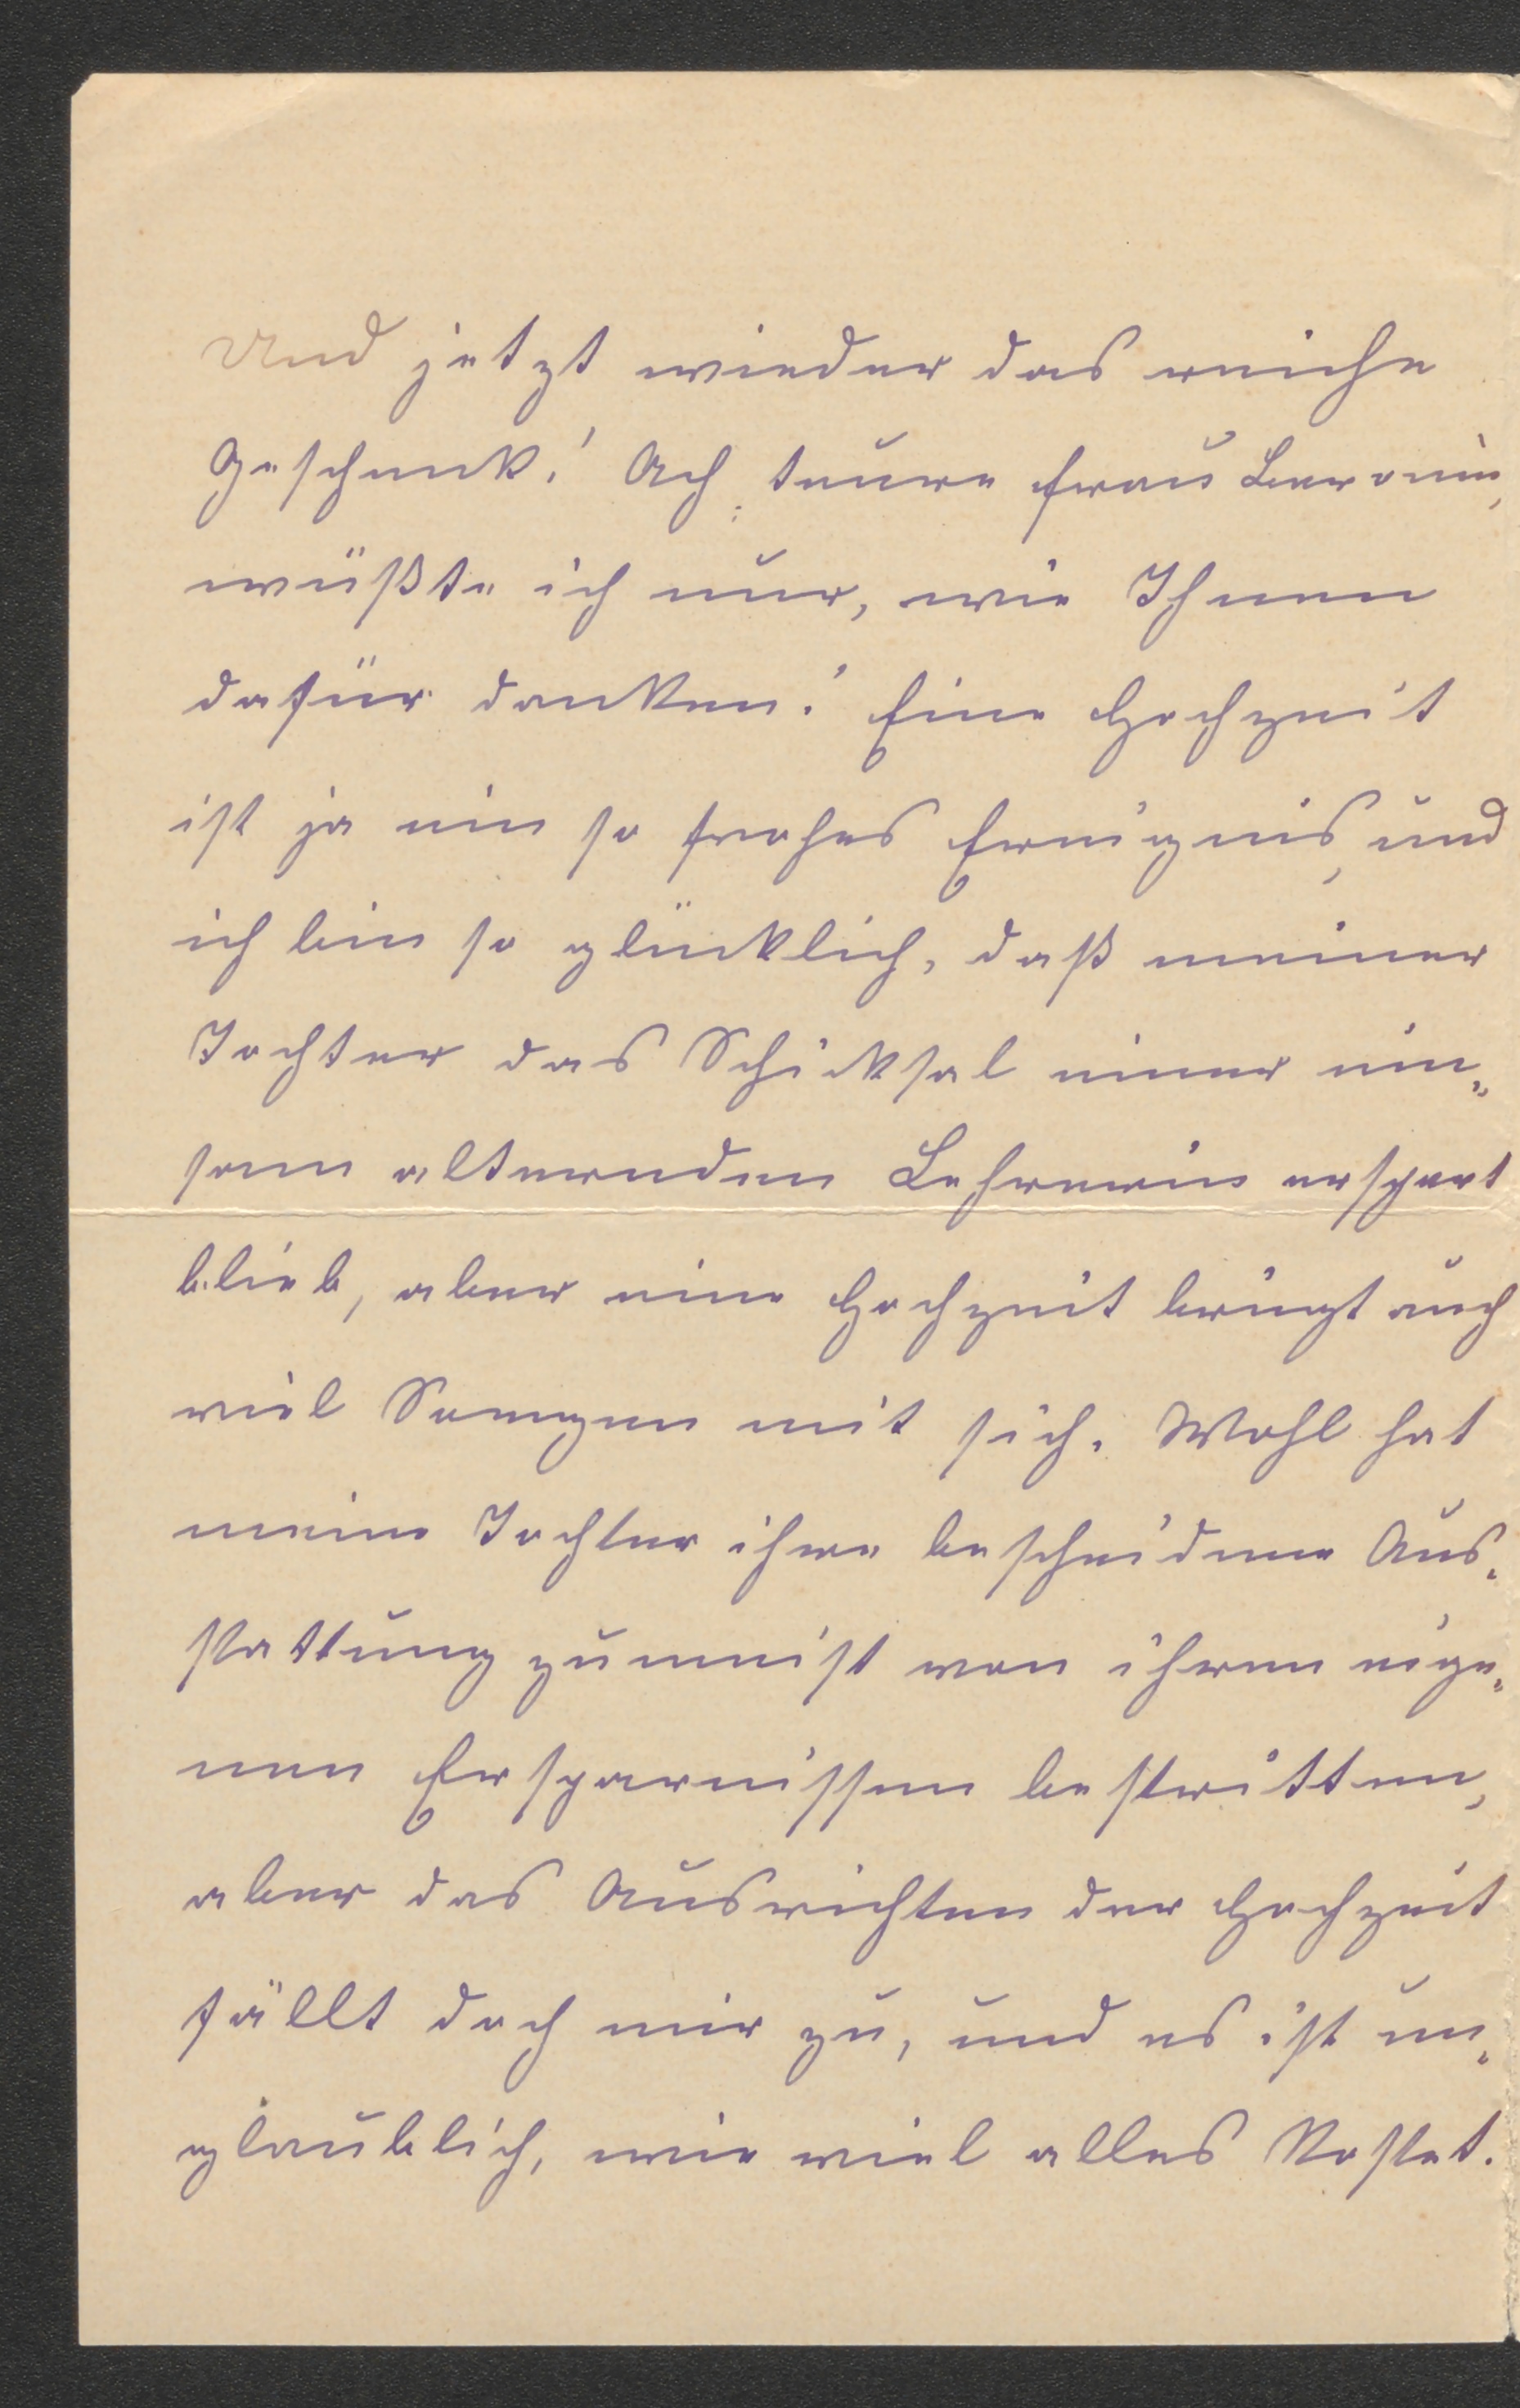 Und jetzt wieder das reiche
Geschenk! Ach, teure Frau Baronin,
wüßte ich nur, wie Ihnen
dafür danken! Eine Hochzeit
ist ja ein so frohes Ereignis, und
ich bin so glücklich, daß meiner
Tochter das Schicksal einer ein-
sam alternden Lehrerin erspart
blieb, aber eine Hochzeit bringt auch
viel Sorgen mit sich. Wohl hat
meine Tochter ihre bescheidene Aus-
stattung zumeist von ihren eige-
nen Ersparnissen bestritten,
aber das Ausrichten der Hochzeit
fällt doch mir zu, und es ist un-
glaublich, wie viel alles kostet.